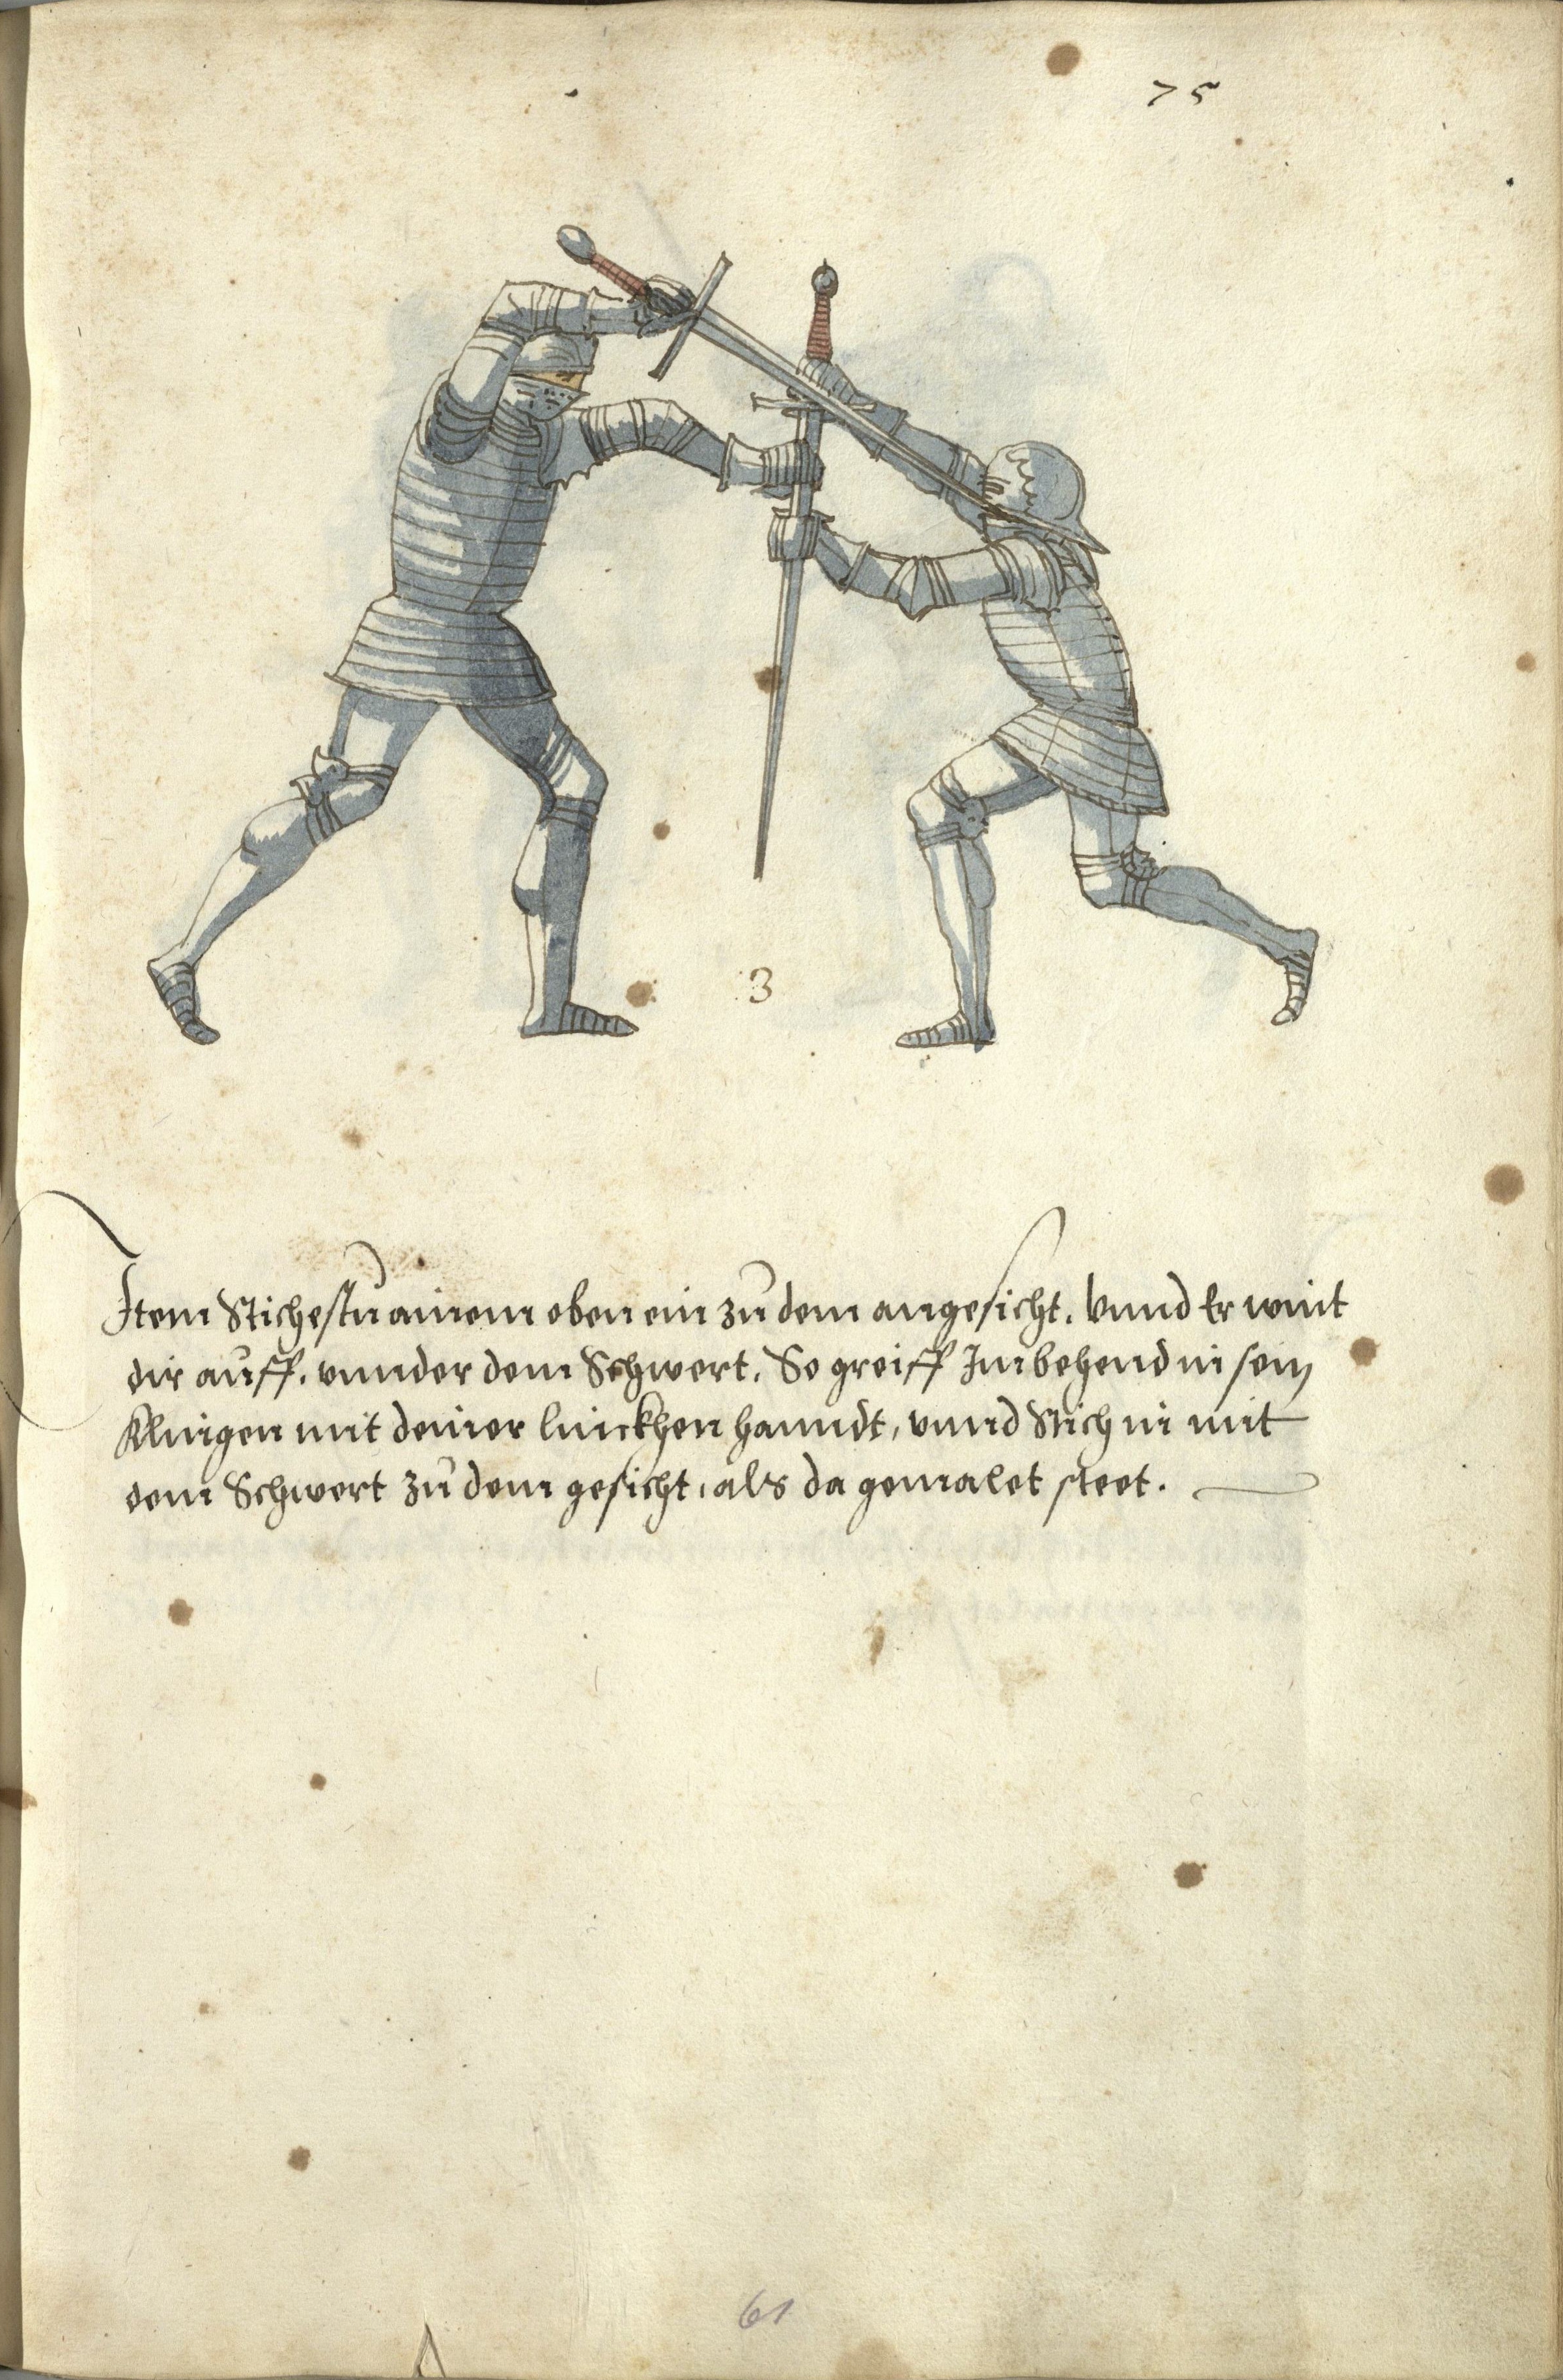 75
3
Item Stichestu ainem oben ein zu dem angesicht. Vnnd Er wint
dir auff. vnnder dem Schwert. So greiff Im behend in sein
Klingen mit deiner linckhen hanndt, vnnd Stich in mit
dem Schwert zu dem gesicht, als da gemalet steet.
61